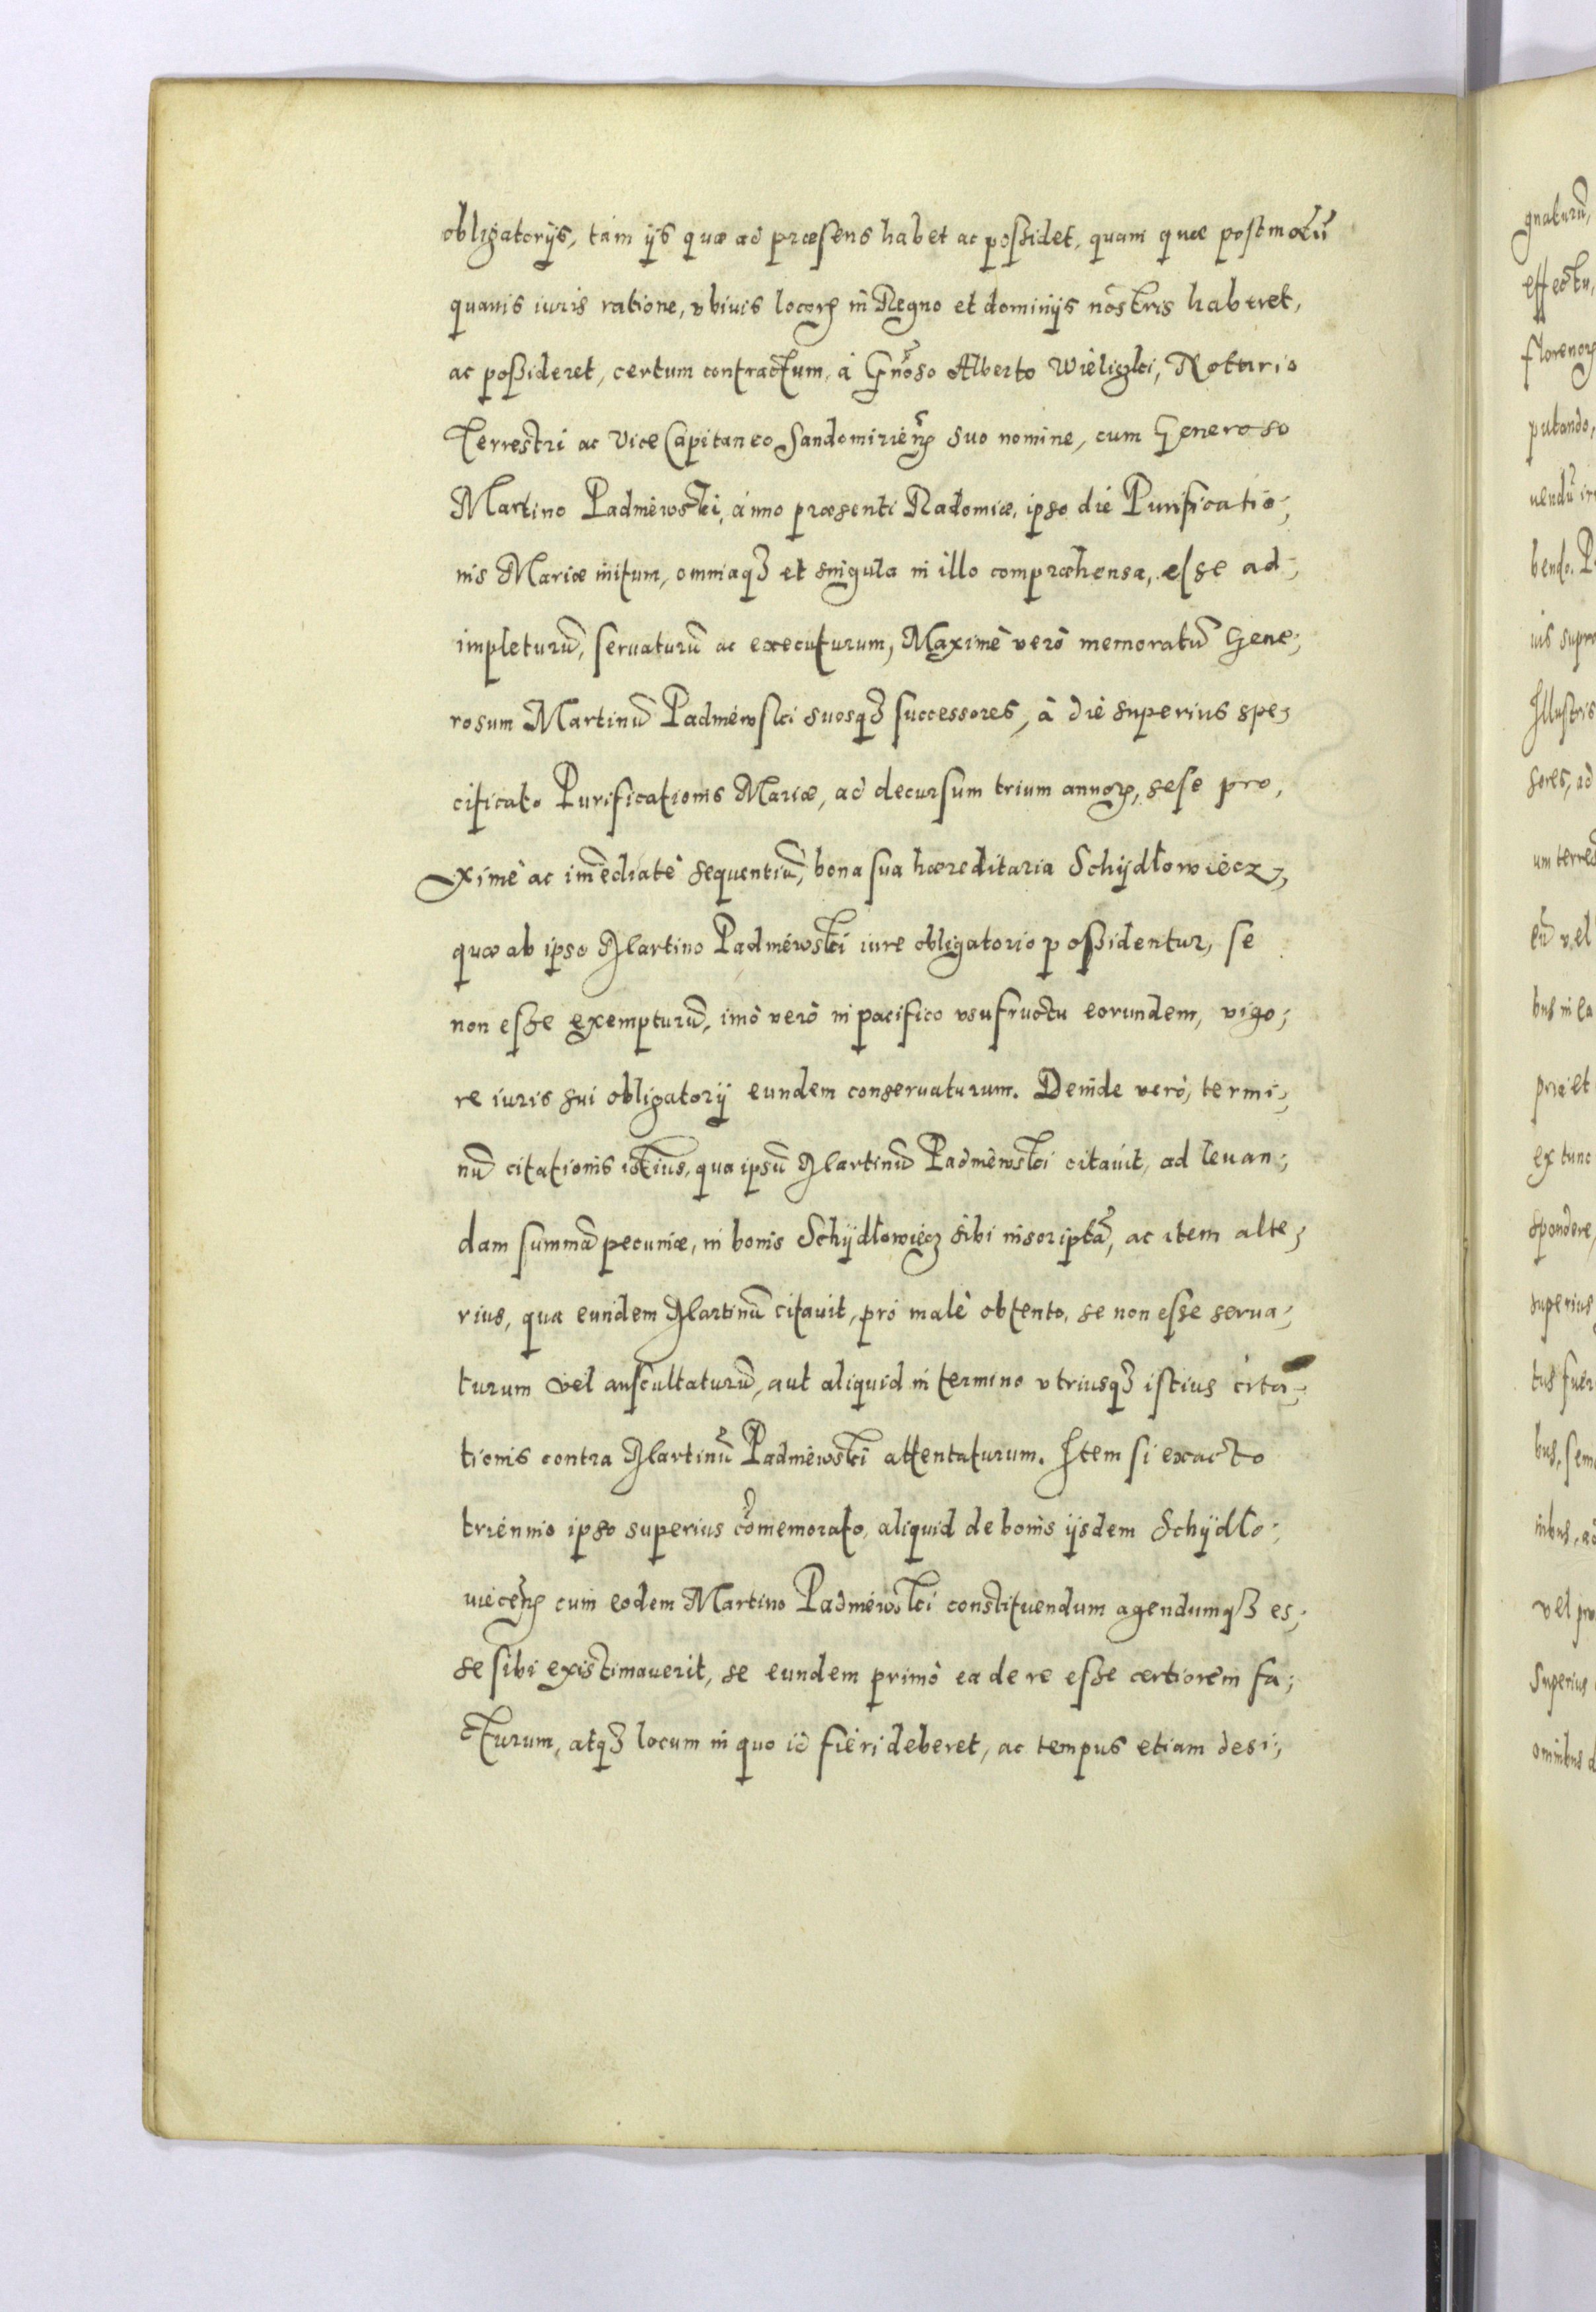 obligatorijs, tam ijs quæ ad præsens habet ac poßidet, quam quæ postmodū
quauis iuris ratione, vbiuis locorꝝ in Regno et dominijs nostris haberet,
ac poßideret, certum contractum, à Gnōso Alberto Wieliczki, Notario
Terrestri ac Vice Capitaneo Sandomirien̄ suo nomine, cum Generoso
Martino Padniewski, anno præsenti Radomiæ, ipso die Purificatio;
nis Mariæ initum, omniaqꝫ et singula in illo compræhensa, esse ad;
impleturū, seruaturū ac executurum, Maximè verò memoratū Gene;
rosum Martinū Padniewski suosqꝫ successores, à die superius spe;
cificato Purificationis Mariæ, ad decursum trium annorꝝ, sese pro,
ximè ac im̄ediatè sequentiū, bona sua hæreditaria Schÿdłowiecz,
quæ ab ipso Martino Padniewski iure obligatorio poßidentur, se
non esse exempturū, imò verò in pacifico vsufructu eorundem, vigo;
re iuris sui obligatorij eundem conseruaturum. Deinde verò, termi;
nū citationis istius, qua ipsū Martinū Padniewski citauit, ad leuan;
dam summā pecuniæ, in bonis Schÿdłowiecz sibi inscriptā, ac item alte;
rius, qua eundem Martinū citauit, pro malè obtento, se non esse serua;
turum vel auscultaturū, aut aliquid in termino vtriusqꝫ istius cita;
tionis contra Martinū Padniewski attentaturum. Item si exacto
triennio ipso superius com̄emorato, aliquid de bonis ijsdem Schÿdło;
uiecen̄ cum eodem Martino Padniewski constituendum agendumqꝫ es;
se sibi existimauerit, se eundem primò ea de re esse certiorem fa;
cturum, atqꝫ locum in quo id fieri deberet, ac tempus etiam desi;